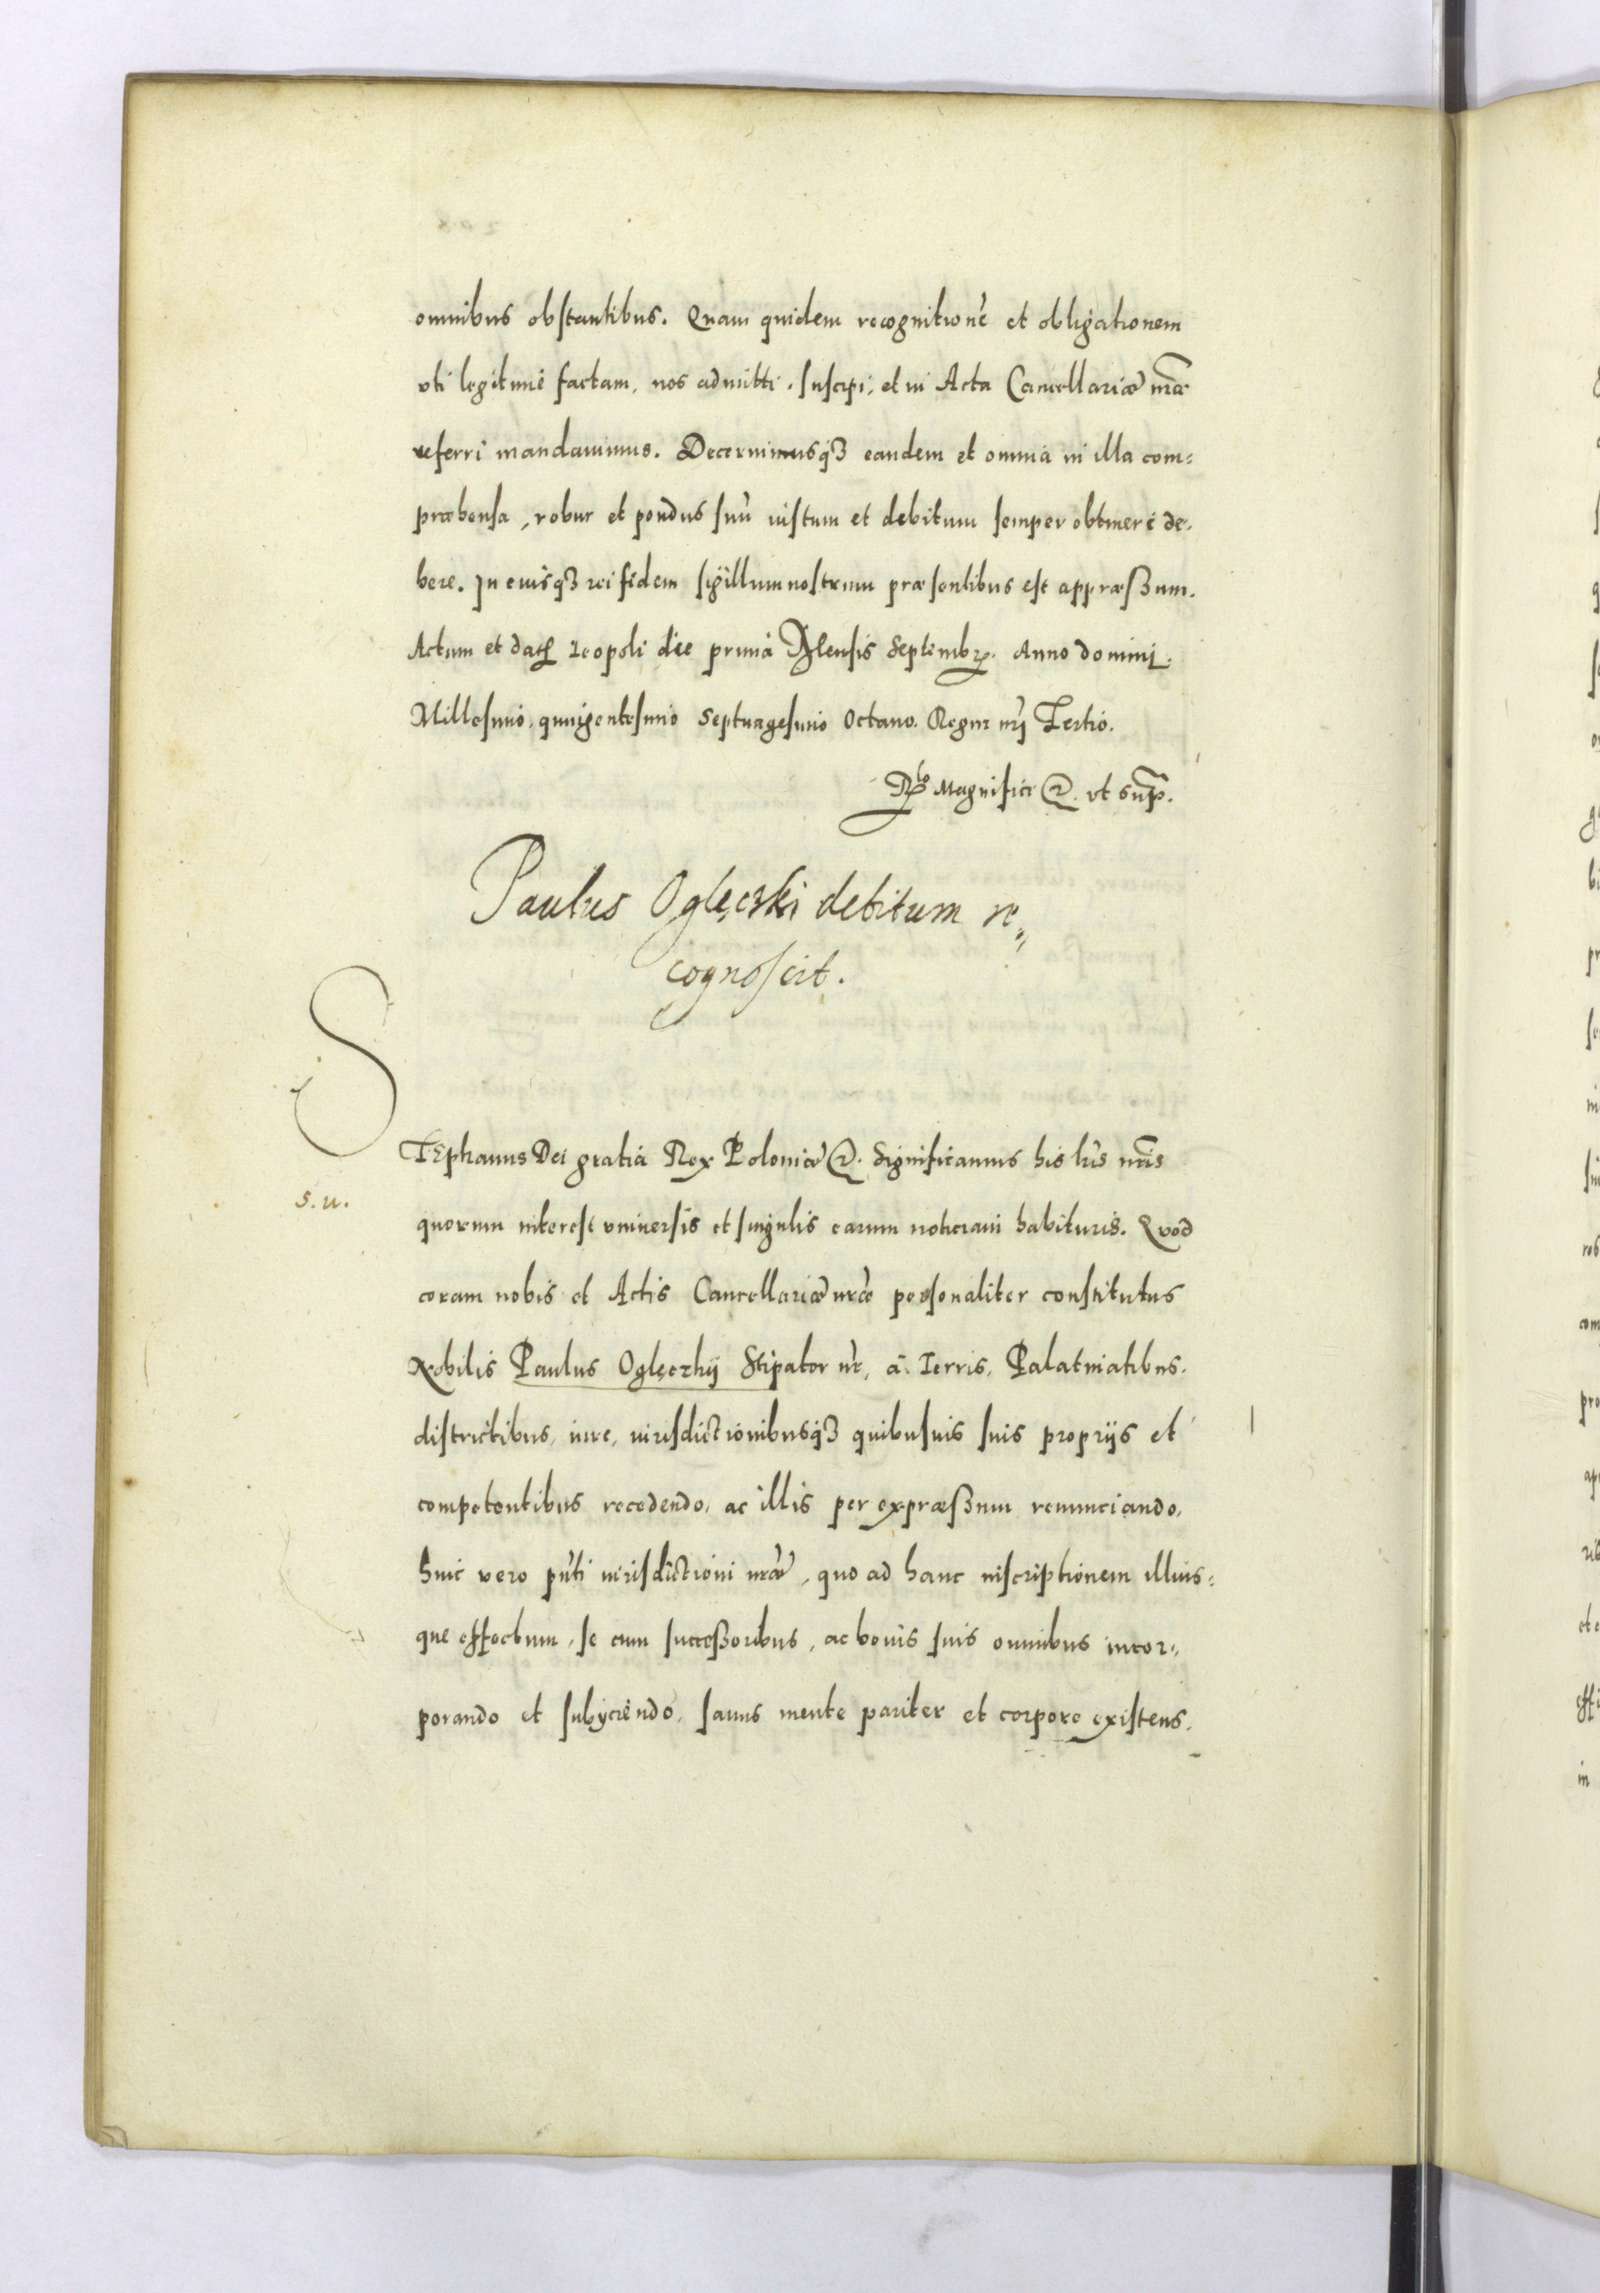 omnibus obstantibus. Quam quidem recognitionē et obligationem
vti legitimè factam, nos admitti, suscipi, et in Acta Cancellariæ nræ
referri mandauimus. Decernimusqꝫ eandem et omnia in illa com=
præhensa, robur et pondus suū iustum et debitum semper obtinere de,
bere. In cuiusqꝫ rei fidem sigillum nostrum præsentibus est appræssum.
Actum et datū Leopoli die prima Mensis Septembr. Anno domini.
Millesimo, quingentesimo Septuagesimo Octauo. Regni nrj Tertio.
Magnifici &. vt Supª.
Paulus Oglęczki debitum re,,
cognoscit.
STEphanus Dei gratia Rex Poloniæ &. Significamus his lrīs nrīs
s. u.
quorum interest vniuersis et singulis earum noticiam habituris. Quod
coram nobis et Actis Cancellariæ nræ personaliter constitutus
Nobilis Paulus Oglęczkij Stipator nr, à Terris, Palatinatibus,
districtibus, iure, iurisdictionibusqꝫ quibusuis suis proprijs et
competentibus recedendo, ac illis per expræssum renunciando,
huic vero pn̄ti iurisdictioni nræ, quo ad hanc inscriptionem illius=
que effectum, se cum successoribus, ac bonis suis omnibus incor=
porando et subijciendo, sanus mente pariter et corpore existens,